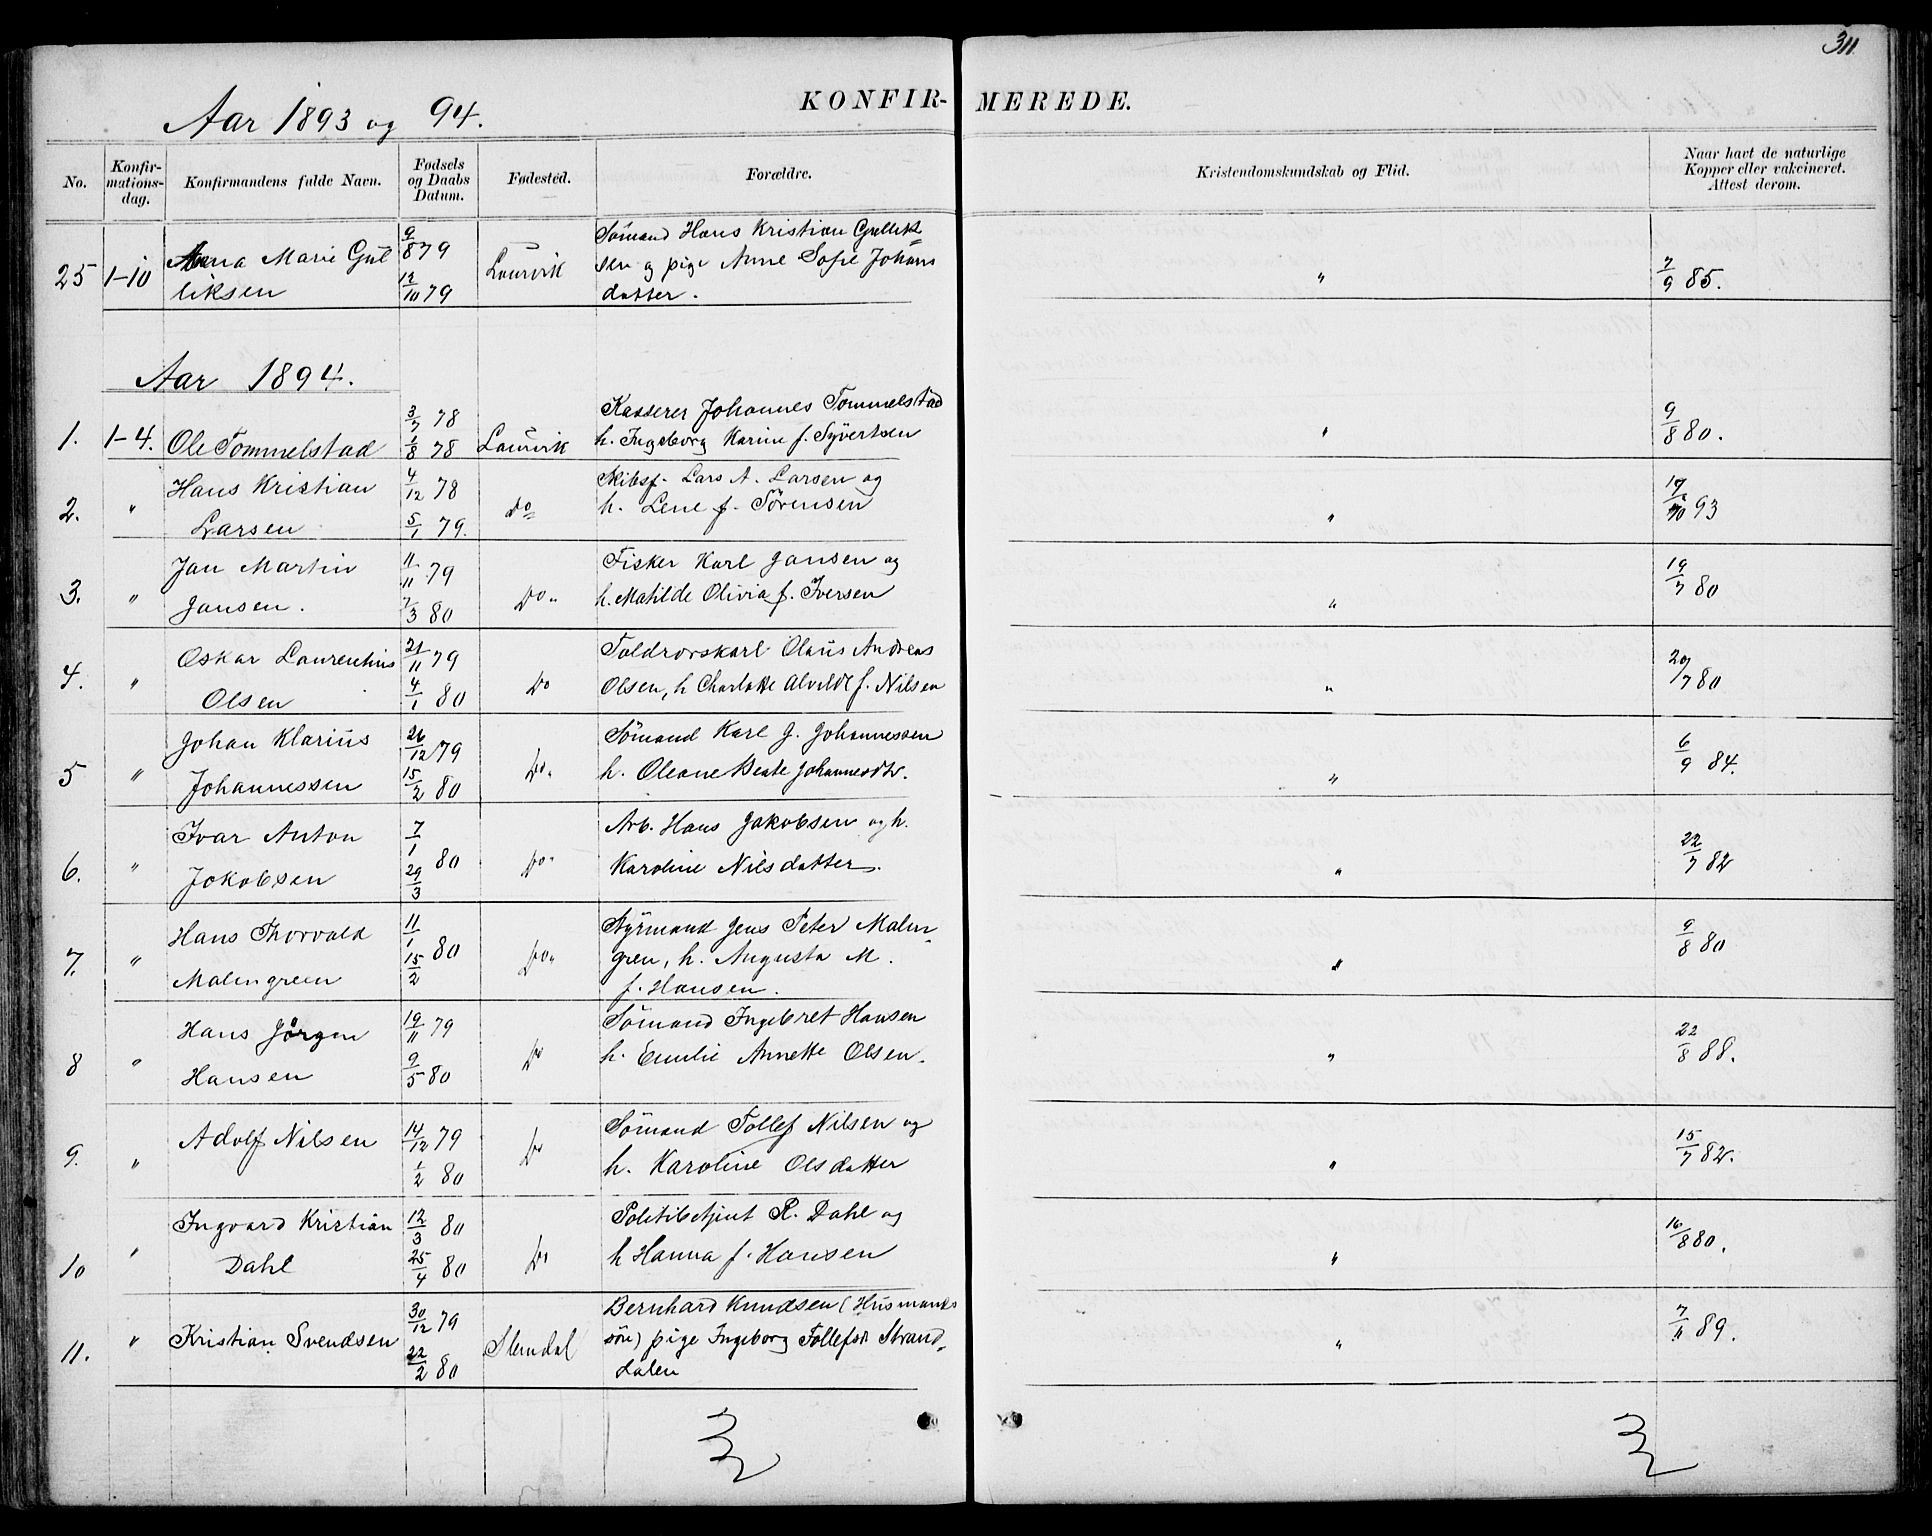 311
Aar 1893 og 94.
KONFIR- MEREDE.
No.
Konfir-
mations-
dag.
Konfirmandens fulde Navn.
Fødsels
og Daabs
Datum.
Fødested.
Forældre.
Kristendomskundskab og Flid.
Naar havt de naturlige
Kopper eller vakcineret.
Attest derom.
25 1-10 Marie Gul
liksen
9/8 79
12/10 79
Laurvik
Sømand Hans Kristian Gullik=
sen og pige Anne Sofie Johans
datter.
" 7/9 85.
Aar 1894.
1. 1-4. Ole Tommelstad
3/7 78
1/8 78
Laurvik
Kasserer Johannes Tommelstad
h. Ingeborg Karine f. Syvertsen
" 9/8 80.
2. " Hans Kristian
Larsen
4/12 78
5/1 79.
Do
Skibsf. Lars A. Larsen og
h. Lene f. Sörensen
" 17/10 93
3. " Jan Martin
Jansen.
11/11 79
7/3 80
Do"
Fisker Karl Jansen og
h. Matilde Olivia f. Iversen
" 19/7 80
4. " Oskar Laurentius
Olsen
21/11 79
4/1 80
Do
Toldrorskarl Olaus Andreas
Olsen, h Charlotte Alvilde f. Nilsen
" 20/7 80
5 " Johan Klarius
Johannessen
26/12 79
15/2 80
Do"
Sömand Karl J. Johannessen
h. Oleane Beate Johannesdtr.
" 6/9 84.
6. " Ivar Anton
Jakobsen
7/1
29/3 80
Do"
Arb. Hans Jakobsen og h.
Karoline Nilsdatter.
" 22/7 82
7. " Hans Thorvald
Malmgreen
11/1
15/2 80
Do"
Styrmand Jens Peter Malm-
gren, h. Augusta M.
f. Hansen.
" 9/8 80
8 " Hans Jørgen
Hansen
19/11 79
9/5 80
Do
Sömand Ingebret Hansen
h. Emilie Annette Olsen.
" 22/8 88.
9. " Adolf Nilsen
14/12 79
1/2 80
Do
Sömand Tollef Nilsen og
h. Karoline Olsdatter
" 15/7 82.
10 " Ingvard Kristian
Dahl
12/3 80
25/4 80
Do
Politibetjent R. Dahl og
h Hanna f. Hansen
" 16/8 80.
11. " Kristian Svendsen
30/12 79
22/2 80
Slemdal
Bernhard Knudsen (Husmands
sön) pige Ingeborg Tollefsdt. Strand-
dalen
" 7/11 89.